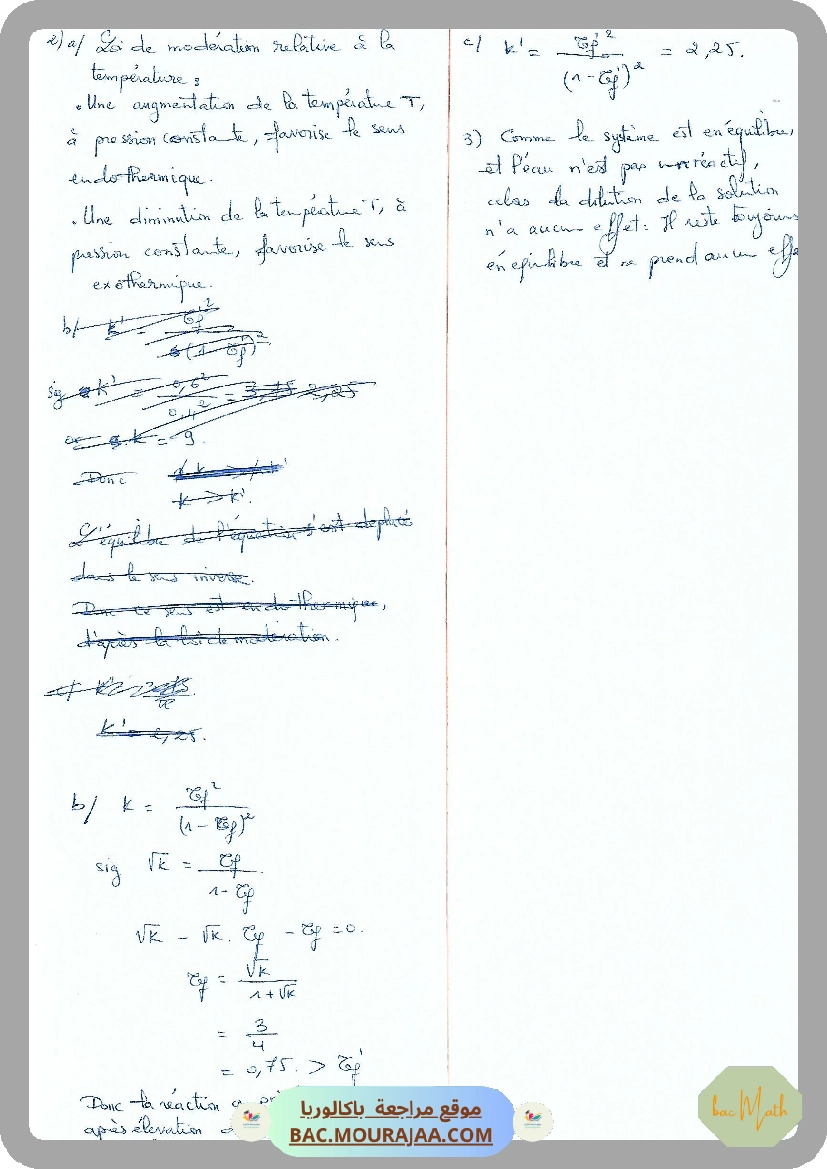 2) a/ Loi de modération relative à la
température :
. Une augmentation de la température T,
à pression constante, favorise le sens
endothermique.
. Une diminution de la température T, à
pression constante, favorise le sens
exothermique.
b/ k' = τf'² / (1 - τf')²
sig k' = 0,6² / 0,4² = 3,75 2,25
or k = 9.
Donc
k > k'.
L'équilibre de l'équation s'est déplacé
dans le sens inverse.
Donc ce sens est endothermique,
d'après la loi de modération.
k' = 2,25.
b/ k = τf² / (1 - τf)²
sig √k = τf / 1 - τf
√k - √k . τf - τf = 0.
τf = √k / 1 + √k
= 3 / 4
= 0,75. > τf'
Donc la réaction
après élévation
c/ k' = τf'² / (1 - τf')² = 2,25.
3) Comme le système est en équilibre,
et l'eau n'est pas un réactif,
alors la dilution de la solution
n'a aucun effet : Il reste toujours
en équilibre et ne prend aucun effe
موقع مراجعة باكالوريا
BAC.MOURAJAA.COM
bac Math